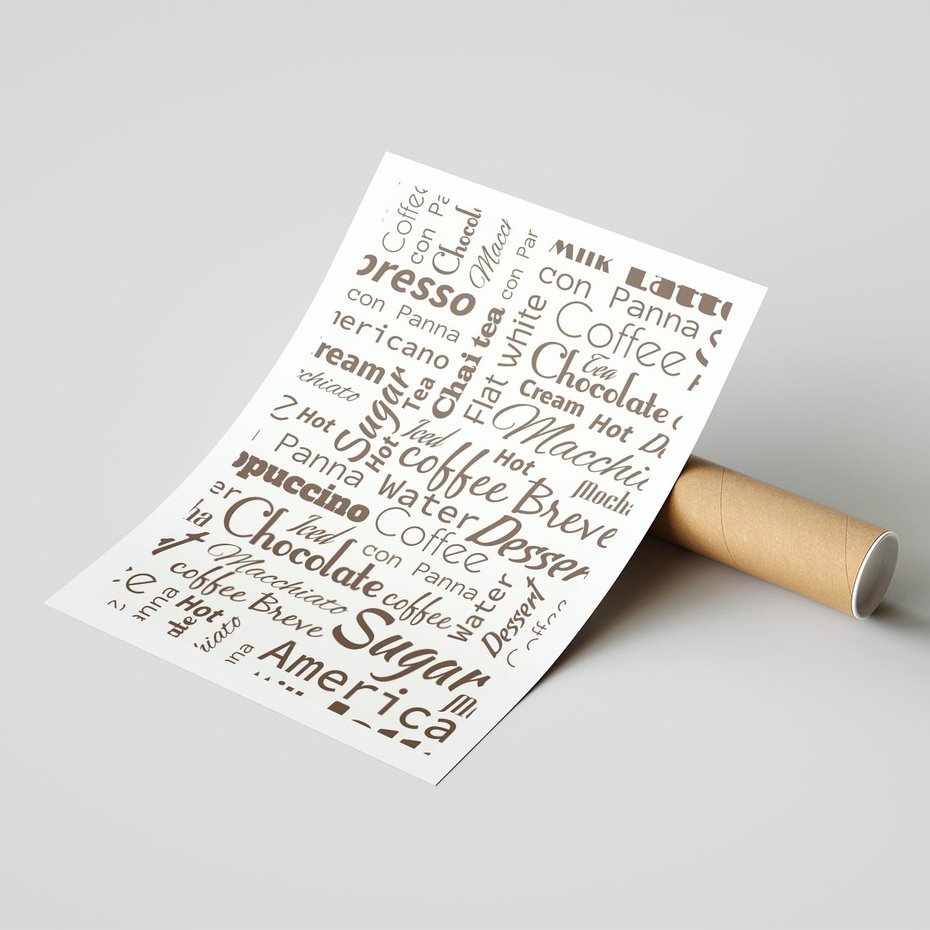 Coffee
con Pa
Chocol
Macch
con Par
Milk
Latte
presso
con Panna
con Panna
Coffee
ericano
Chai tea
Flat White
Tea
Chocolate
ream
chiato
Sugar
Tea
Cream
Hot
Macchia
Hot
Iced
Hot
coffee
Hot
Panna
Breve
Mocha
ppuccino
Water
Coffee
Dessert
er
Iced
Chocolate
con Panna
ha
Macchiato
coffee
Water
Dessert
coffee Breve
Sugar
Coffee
anna
Hot
ate
hiato
nna
America
Milk
Latte